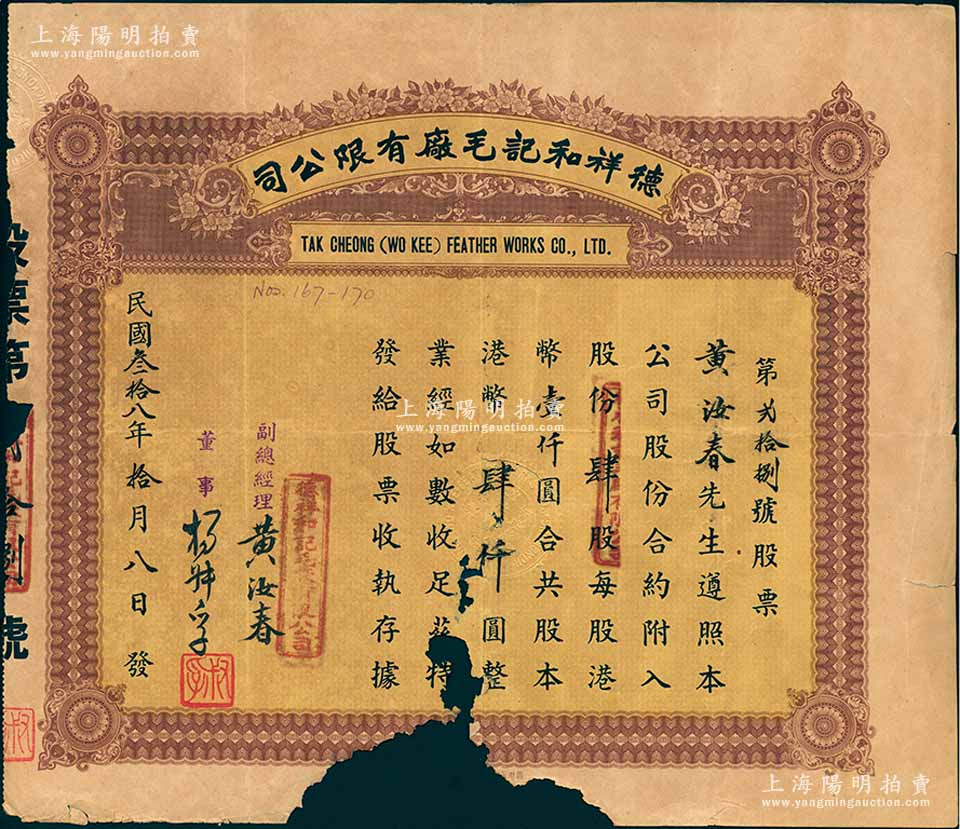 上海陽明拍賣
www.yangmingauction.com
德祥和記毛廠有限公司
TAK CHEONG (WO KEE) FEATHER WORKS CO., LTD.
Nos. 167-170
第弍拾捌號股票
黃汝春先生遵照本
公司股份合約附入
股份肆股每股港
幣壹仟圓合共股本
港幣肆仟圓整
業經如數收足茲特
發給股票收執存據
副總經理 黃汝春
董事 楊叔孚
叔孚
民國叁拾八年拾月八日發
股票第
拾捌號
上海陽明拍賣
www.yangmingauction.com
上海陽明拍賣
www.yangmingauction.com